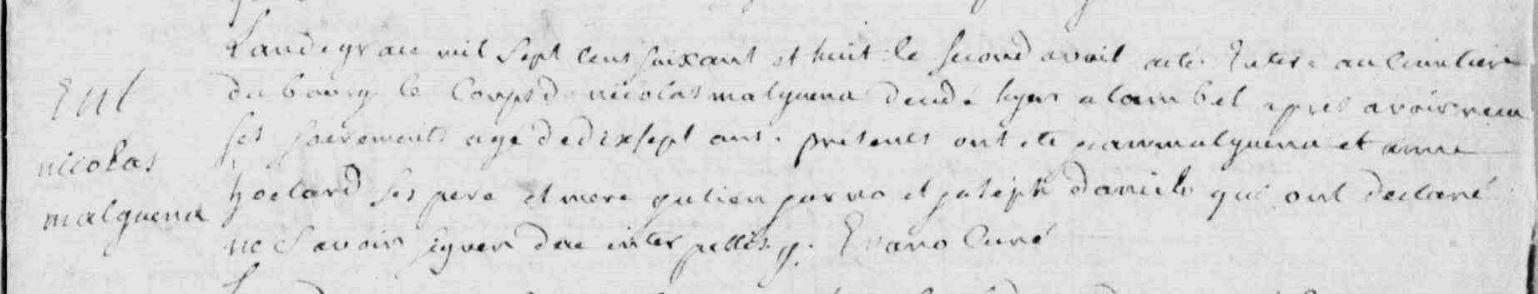 Ent
nicolas
malguena
L'an de grace mil sept cent soixant et huit le second avril a été Enterré au Cimetiere
du bourg le Corps de nicolas malguena decedé hyer a lambel apres avoir recu
ses sacrements agé de dix sept ans. presents ont ete jan malguena et anne
hoelard ses pere et mere julien jarno et joseph danielo qui ont declaré
ne savoir signer de ce interpellés. Evano Curé